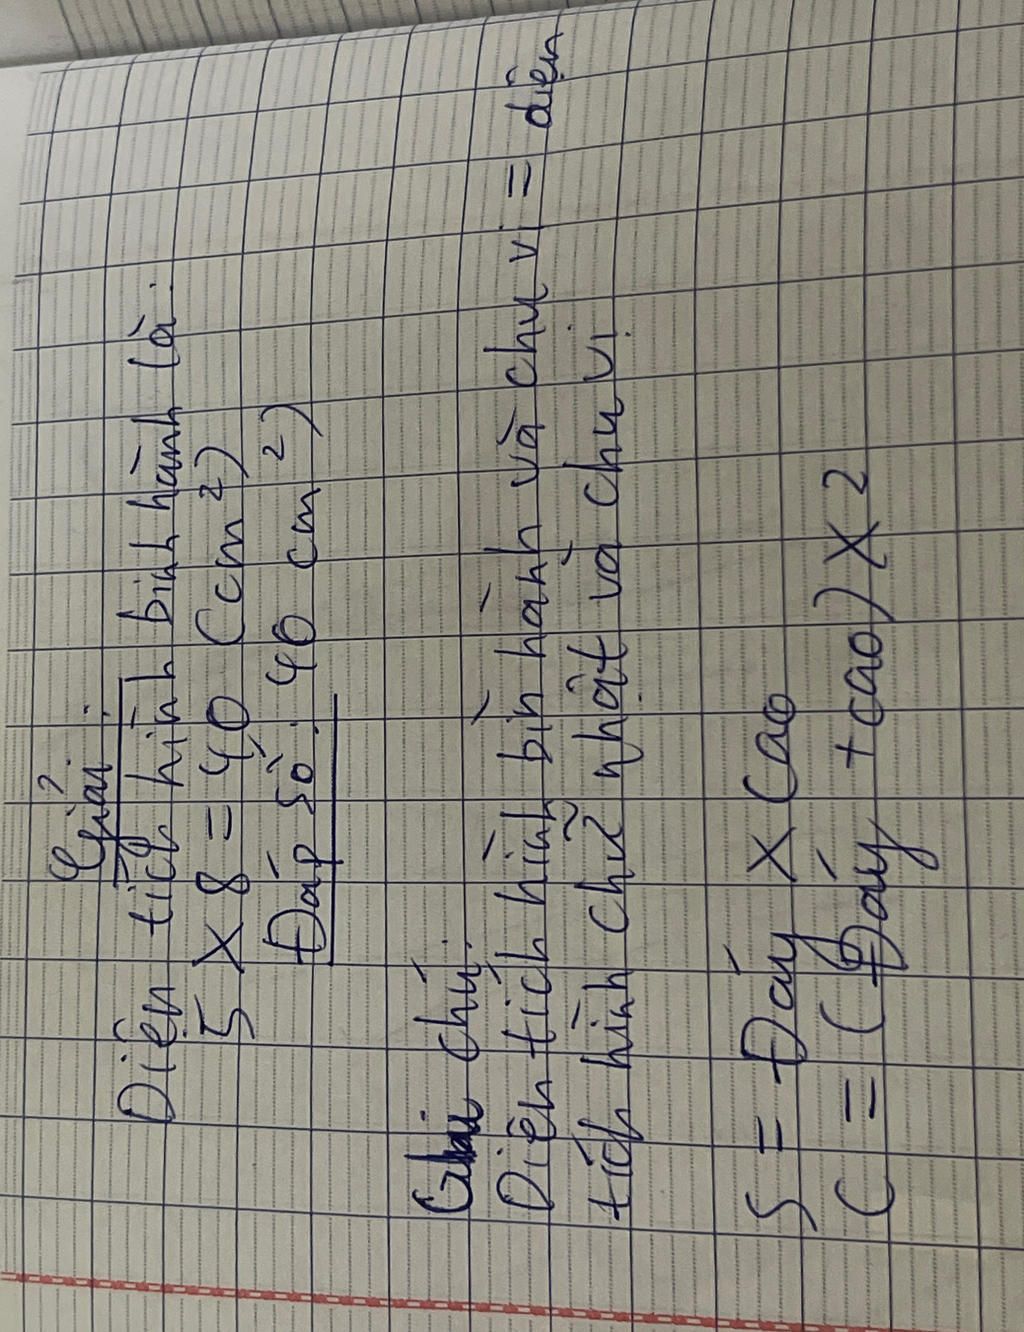 Giải:
Diện tích hình bình hành là:
5 x 8 = 40 (cm²)
Đáp số: 40 cm²)
Ghi chú:
Diện tích hình bìn hành và chu vi = diện
tích hình chữ nhật và chu vi
S = Đáy x Cao
C = (Đáy + cao) x 2